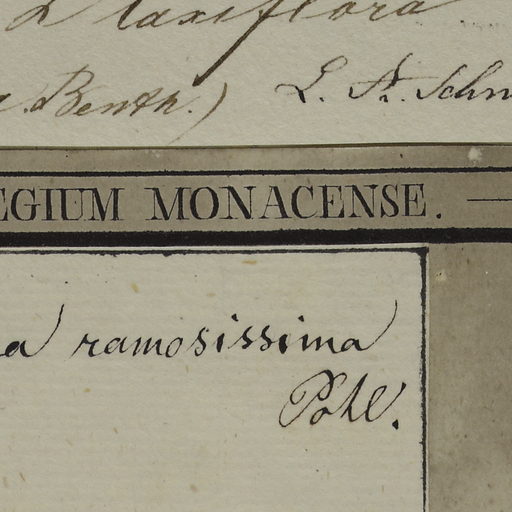 α laxiflora
Benth.) L. A. Schm
EGIUM MONACENSE.
a ramosissima
Pohl.